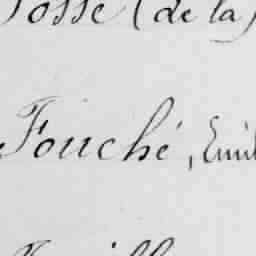 Fosse (de la)
Fouché, Emil